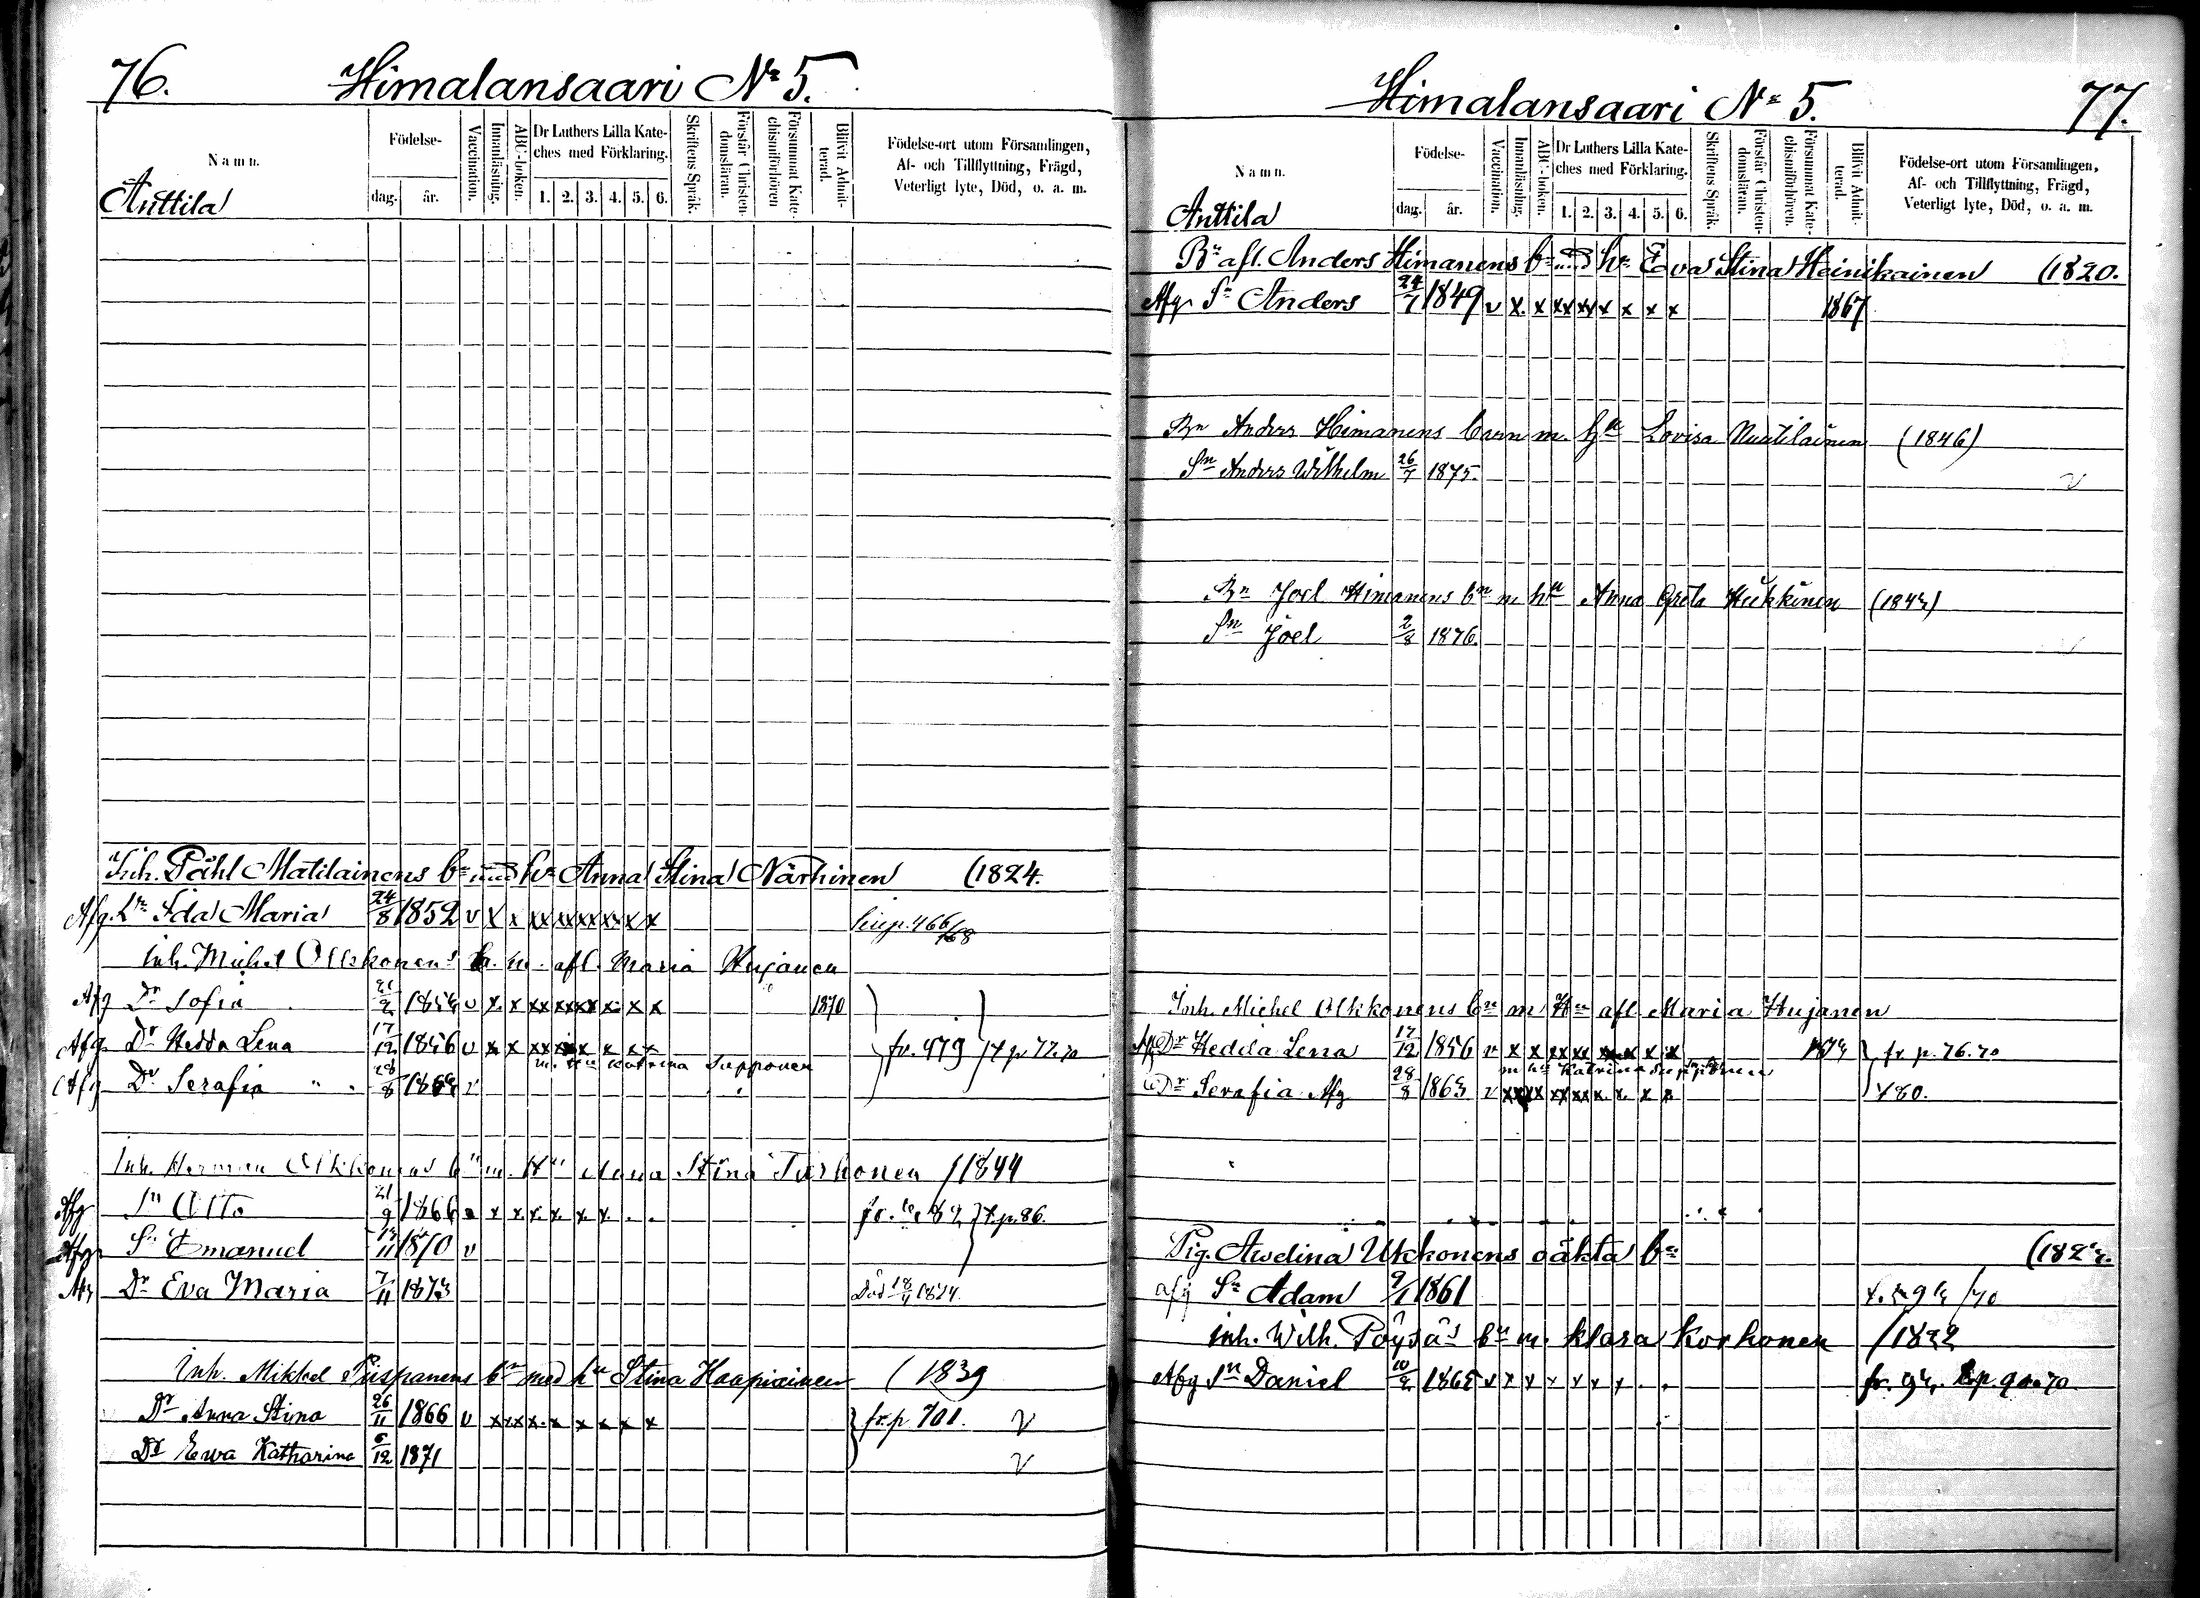 76. Himalansaari No 5.
Namn.
Födelse-
dag. år.
Vaccination.
Innanläsning.
ABC-boken.
Dr Luthers Lilla Kate-
ches med Förklaring.
1. 2. 3. 4. 5. 6.
Skriftens Språk.
Förstår Christen-
domsläran.
Försummat Kate-
chismiförhören
Blifvit Admit-
terad.
Födelse-ort utom Församlingen,
Af- och Tillflyttning, Frägd,
Veterligt lyte, Död, o. a. m.
Anttila
Inh. Påhl Matilainens bn med hu Anna Stina Närhinen (1824.
Afg. Dr Ida Maria 24/8 1852 v x x xx xx xx x x x p. 466/68
inh. Michel Olkkonens bn m. afl. Maria Hujanen
Afg Dr Sofia 21/2 1854 v x x xx xx xx x x x 1870
Afg Dr Hedda Lena 17/12 1856 v x x xx x x x x x fr. 479 p 77.70
m. hu Katrina Supponen
Afg Dr Serafia 28/8 1863 v
Inh. Herman Olkkonens bn m. Hu Anna Stina Turhonen (1844
Afg Sn Otto 21/9 1866 v x x x x x x . . p. 86.
Afg Sn Emanuel 11 1870 v
Afg Dr Eva Maria 7/11 1873 Död 18/4 1874.
Inh. Mikkel Piispanens bn med hu Stina Haapiainen (1839
Dr Anna Stina 26/11 1866 v x x x x x x x x x fr. p 701. v
Dr Ewa Katharina 6/12 1871 v
Himalansaari No 5. 77.
Namn.
Födelse-
dag. år.
Vaccination.
Innanläsning.
ABC-boken.
Dr Luthers Lilla Kate-
ches med Förklaring.
1. 2. 3. 4. 5. 6.
Skriftens Språk.
Förstår Christen-
domsläran.
Försummat Kate-
chismiförhören.
Blifvit Admit-
terad.
Födelse-ort utom Församlingen,
Af- och Tillflyttning, Frägd,
Veterligt lyte, Död, o. a. m.
Anttila
Bn afl. Anders Himanens bn med hu Eva Stina Heinikainen (1820.
Afg Sn Anders 24/7 1849 v x x xx xx x x x x 1867
Bn Anders Himanens barn m. Hu Lovisa Nuutilainen (1846)
Sn Anders Wilhelm 26/7 1875. v
Bn Joel Himanens bn m hu Anna Greta Hukkinen (1843)
Sn Joel 2/8 1876. v
Inh. Michel Olkkonens bn m Hu afl Maria Hujanen
Afg Dr Hedda Lena 17/12 1856 v x x xx xx x x x x 1873 fr p. 76.70
m hu Katrina Supponen
Dr Serafia Afg 28/8 1863 v x x x x xx xx x x x x 480.
Pig. Awelina Ukkonens oäkta bn
afg Sn Adam 9/1 1861
inh. Wilh. Pöysäs bn m. Klara Korhonen (1822
Afg Sn Daniel 10/2 1865 v x x x x x x . .